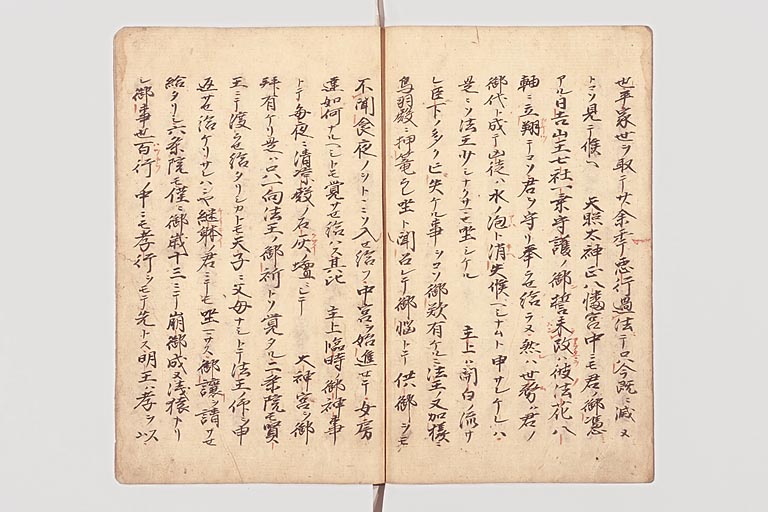 世平家世ヲ取テ廿余年悪行過法テ只今既ニ滅ヌ
トコソ見テ候ヘ 天照太神正八幡宮中ニモ君ノ御憑
アル日吉山王七社一乗守護ノ御誓未改ハ彼法花八
軸ニ立翔テコソ君ヲ守リ奉ラセ給ラメ然ハ世務ハ君ノ
御代ト成テ凶徒ハ水ノ泡ト消失候ヘシナムト申サレケレハ
是ニソ法王少シナクサマセ坐シケル 主上ハ関白ノ流サ
レ臣下ノ多ク亡失ケル事ヲコソ御歎有ケルニ法王ノ又加様ニ
鳥羽殿ニ押篭ラレ坐ト聞召シテ御悩トテ供御ヲシモ
不聞食夜ノヲトヽニソ入セ給フ中宮ヲ始進セテ女房
達如何ナルヘシトモ覚サセ給ハス其比 主上臨時ノ御神事
トテ毎夜ニ清凉殿ノ石灰壇ニシテ 大神宮ヲ御
拝有ケリ是ハ只一向法王ノ御祈トソ覚タル二条院モ賢
王ニテ渡ラセ給タリシカトモ天子ニ父母ナシトテ法王ノ仰ヲ申
返セ給ケリサレハニヤ継躰ノ君ニテモ坐マサス御譲ヲ請サセ
給タリシ六条院モ僅ニ御歳十三ニテ崩御成ヌ浅猿カリ
シ御事也百行ノ中ニモ孝行ヲモテ先トス明王ハ孝ヲ以